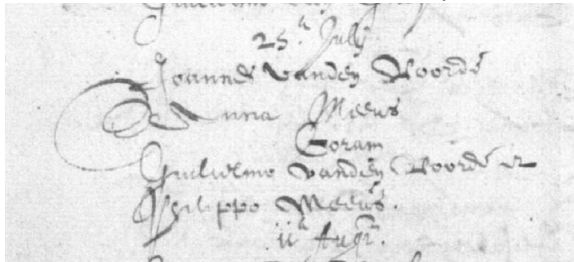 25ª July
Joannes vanden Roorde
Anna Meeus
Coram
Guilielmo vanden Roorde et
Philippo Meeus.
11ª Augti.